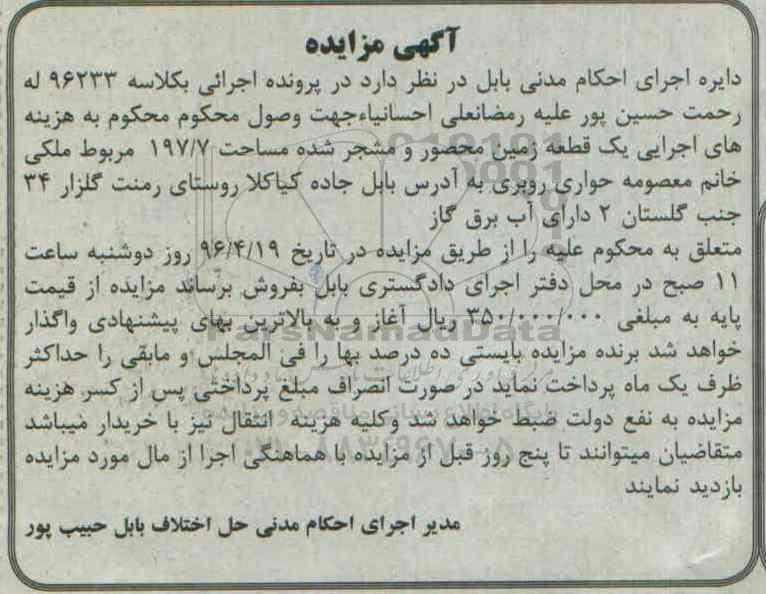 آگهی مزایده
دایره اجرای احکام مدنی بابل در نظر دارد در پرونده اجرائی بکلاسه ۹۶۲۳۳ له
رحمت حسین پور علیه رمضانعلی احسانیاءجهت وصول محکوم محکوم به هزینه
های اجرایی یک قطعه زمین محصور و مشجر شده مساحت ۱۹۷/۷ مربوط ملکی
خانم معصومه حواری روبری به آدرس بابل جاده کیاکلا روستای رمنت گلزار ۳۴
جنب گلستان ۲ دارای آب برق گاز
متعلق به محکوم علیه را از طریق مزایده در تاریخ ۹۶/۴/۱۹ روز دوشنبه ساعت
۱۱ صبح در محل دفتر اجرای دادگستری بابل بفروش برساند مزایده از قیمت
پایه به مبلغی ۳۵۰/۰۰۰/۰۰۰ ریال آغاز و به بالاترین بهای پیشنهادی واگذار
خواهد شد برنده مزایده بایستی ده درصد بها را فی المجلس و مابقی را حداکثر
ظرف یک ماه پرداخت نماید در صورت انصراف مبلغ پرداختی پس از کسر هزینه
مزایده به نفع دولت ضبط خواهد شد وکلیه هزینه انتقال نیز با خریدار میباشد
متقاضیان میتوانند تا پنج روز قبل از مزایده با هماهنگی اجرا از مال مورد مزایده
بازدید نمایند
مدیر اجرای احکام مدنی حل اختلاف بابل حبیب پور
ParsNamadData